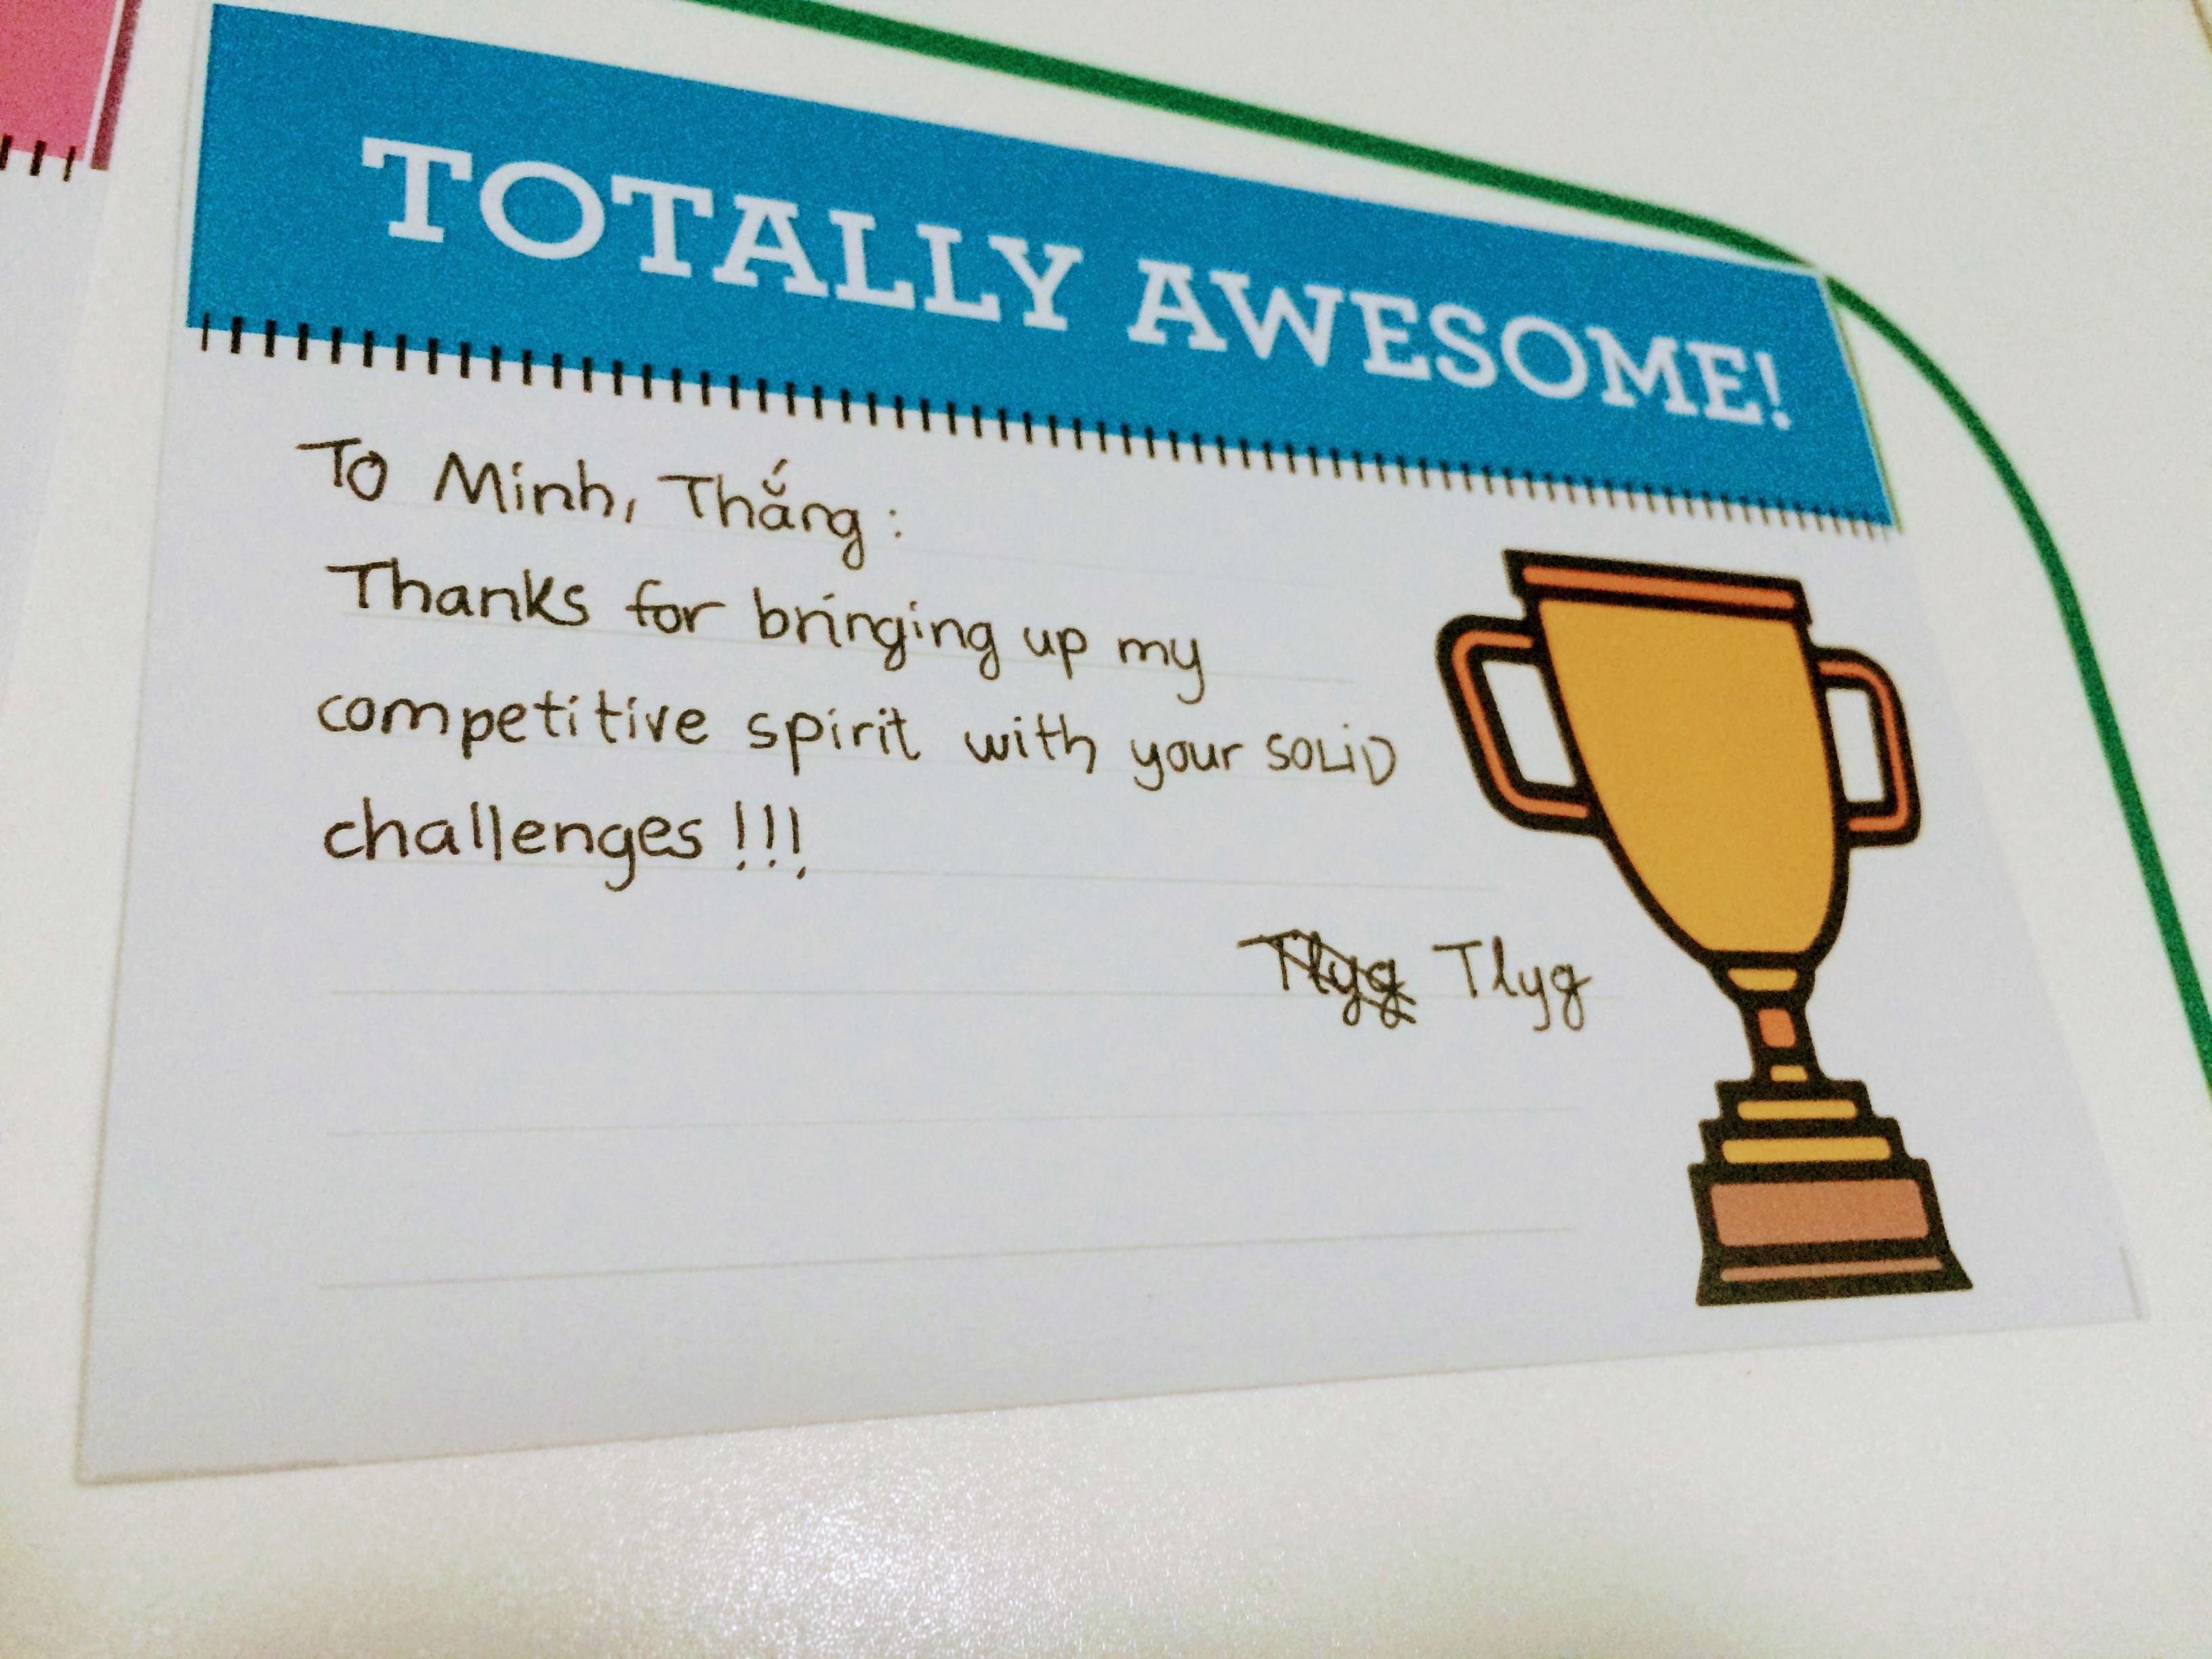 TOTALLY AWESOME!
To Minh, Thắng :
Thanks for bringing up my
competitive spirit with your SOLiD
challenges !!!
Tlyg Tlyg